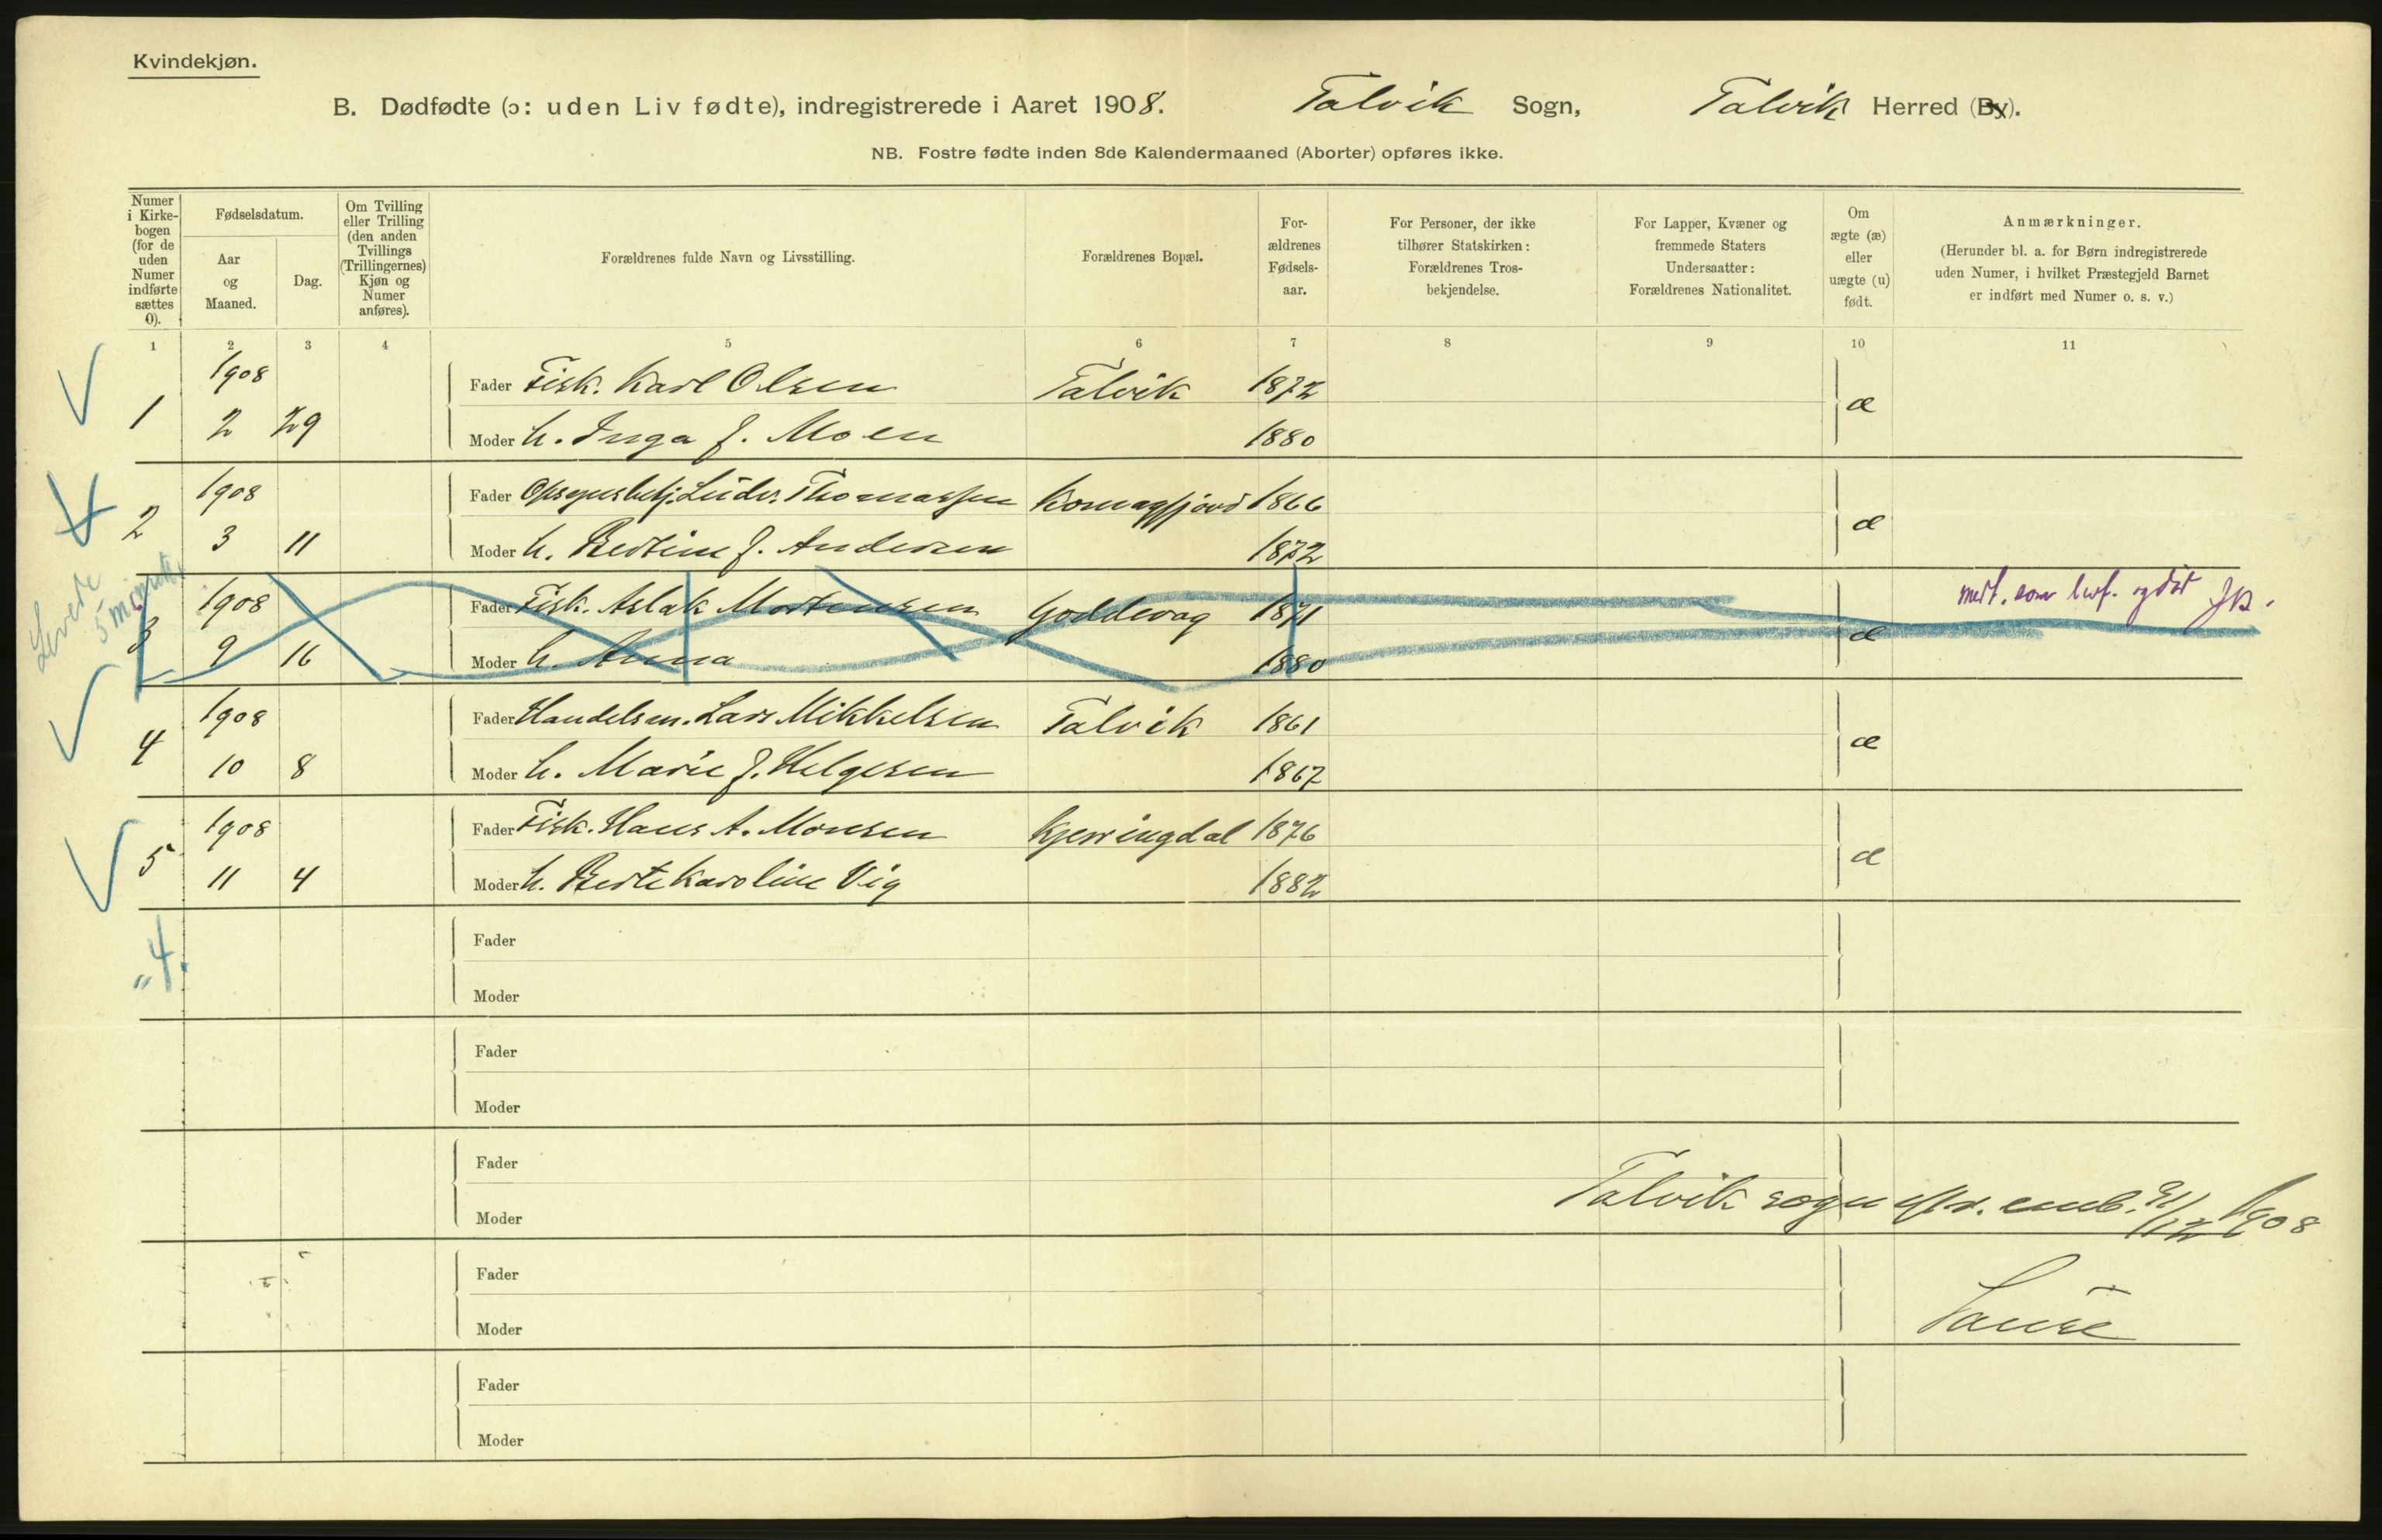 Kvindekjøn.
B. Dødfødte (ɔ: uden Liv fødte), indregistrerede i Aaret 1908. Talvik Sogn, Talvik Herred (By).
NB. Fostre fødte inden 8de Kalendermaaned (Aborter) opføres ikke.
Numer i Kirkebogen (for de uden Numer indførte sættes 0).
Fødselsdatum.
Aar og Maaned.
Dag.
Om Tvilling eller Trilling (den anden Tvillings (Trillingernes) Kjøn og Numer anføres).
Forældrenes fulde Navn og Livsstilling.
Forældrenes Bopæl.
For-ældrenes Fødsels-aar.
For Personer, der ikke tilhører Statskirken: Forældrenes Tros-bekjendelse.
For Lapper, Kvæner og fremmede Staters Undersaatter: Forældrenes Nationalitet.
Om ægte (æ) eller uægte (u) født.
Anmærkninger.
(Herunder bl. a. for Børn indregistrerede uden Numer, i hvilket Præstegjeld Barnet er indført med Numer o. s. v.)
1 2 3 4 5 6 7 8 9 10 11
1908 Fader Fisk. Karl Olsen Talvik 1872 æ
1 2 29 Moder h. Inga f. Moen 1880
1908 Fader Thomassen Komagfjord 1866 æ
2 3 11 Moder h. Bertine f. Andersen 1872
Levede 5 minutter
3 1908 Fader Fisk. Aslak Mortensen 1871 æ
9 16 Moder h. Anna 1880
1908 Fader Handelsm. Lars Mikkelsen Talvik 1861 æ
4 10 8 Moder h. Marie f. Helgesen 1867
1908 Fader Fisk. Hans A. Monsen Kjerringdal 1876 æ
5 11 4 Moder h. Berte Karoline Vig 1882
"4.
Fader
Moder
Fader
Moder
Fader
Moder
Talvik sogn emb. 1908
Fader
Moder
Fader
Moder